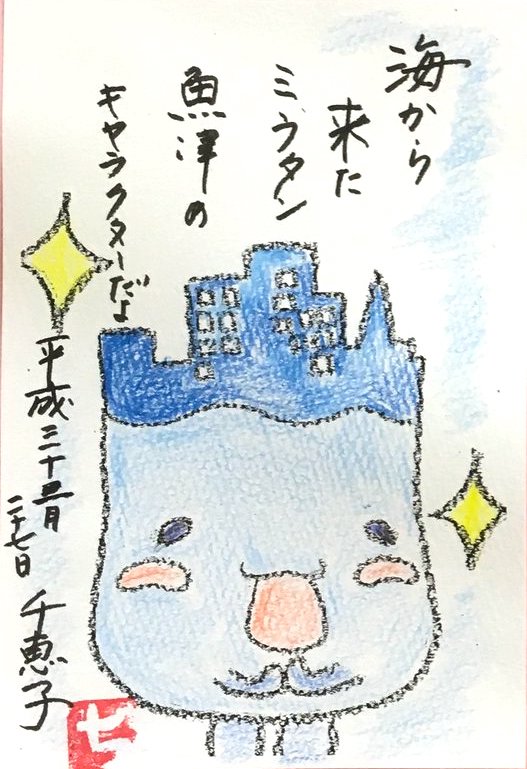 海から
来た
ミラタン
魚津の
キャラクターだよ
平成三十 月
二十七日
千恵子